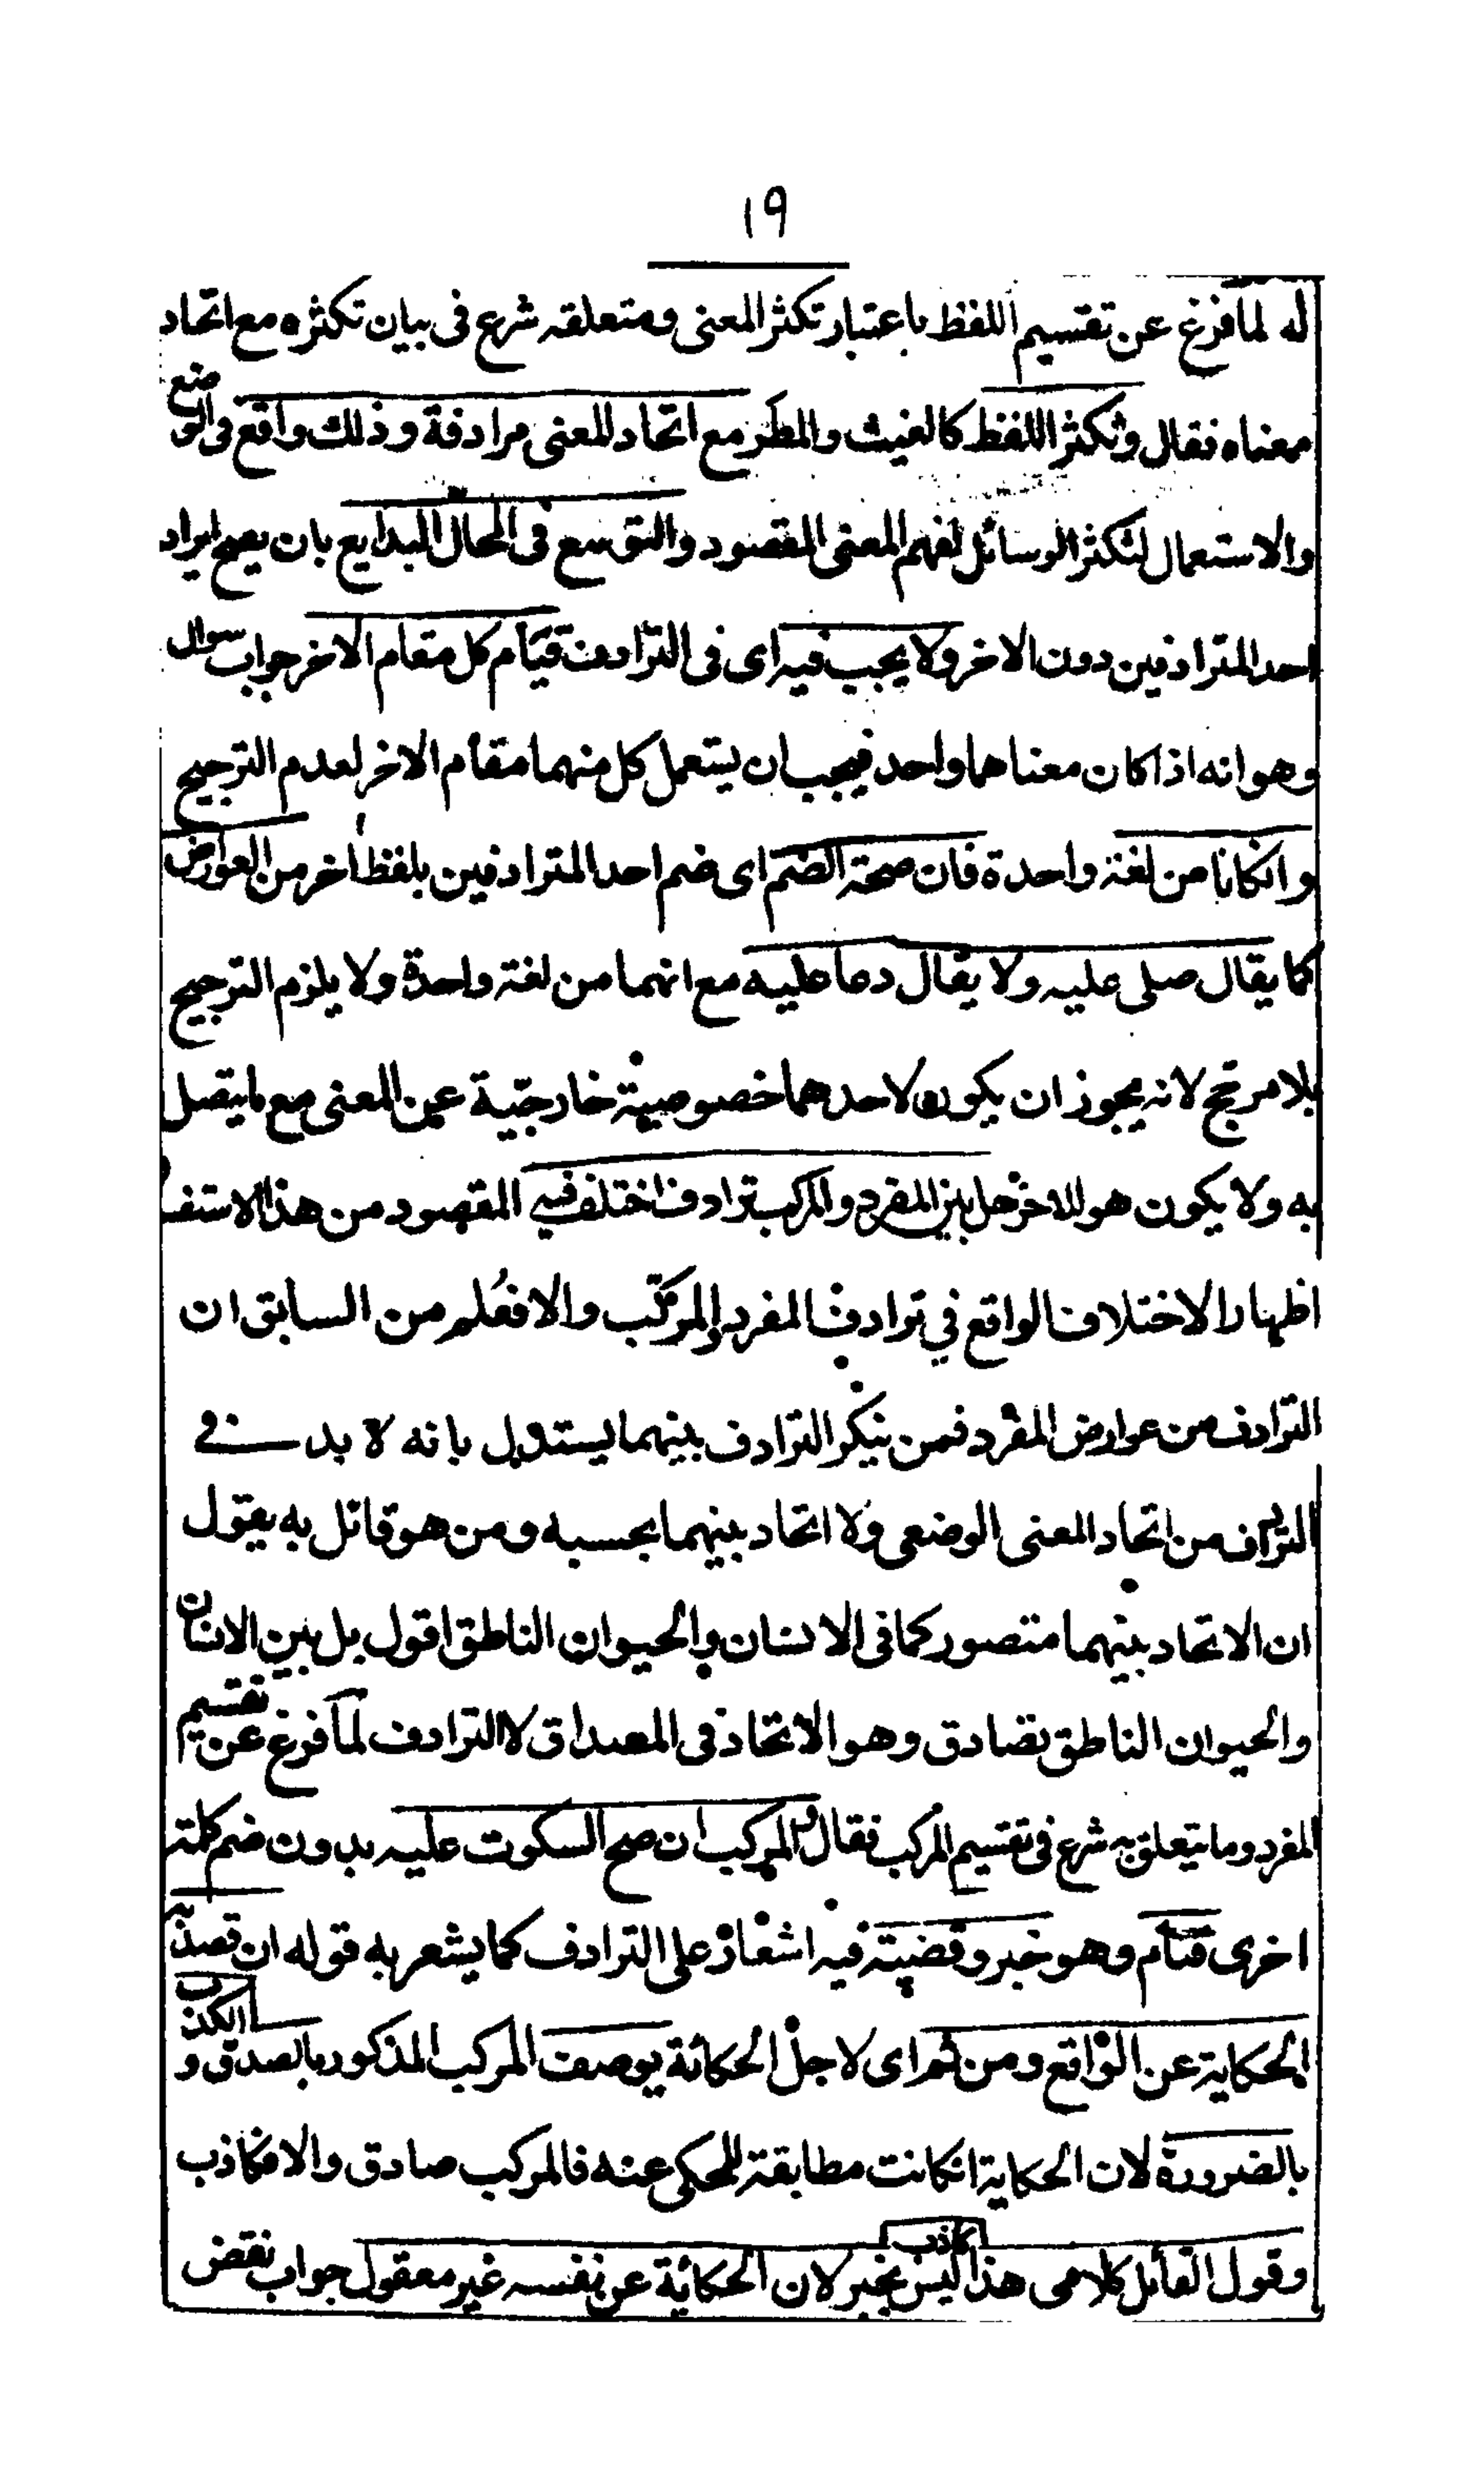 ١٩
له لما فرغ عن تقسيم اللفظ باعتبار تكثر المعنى ومتعلقه شرع فى بيان تكثره مع اتحاد
معناه فقال وتكثر اللفظ كالغيث والمطر مع اتحاد المعنى مرادفة وذلك واقع فى الوضع
والاستعمال لتكثر الوسائل لفهم المعنى المقصود والتوسع فى المحال البدايع بان يصح ايراد
احد المترادفين دون الاخر ولا يجب فيه اى فى الترادف قيام كل مقام الاخر جواب سوال
وهو انه اذا كان معناهما واحد فيجب ان يستعمل كل منهما مقام الاخر لعدم الترجيح
وانكانا من لغة واحدة فان صحة الضم اى ضم احد المترادفين بلفظ اخر من العوارض
كما يقال صلى عليه ولا يقال دعا عليه مع انهما من لغة واحدة ولا يلزم الترجيح
بلا مرجح لانه يجوز ان يكون لاحدهما خصوصية خارجية عن المعنى مع ما يتصل
به ولا يكون هو للاخر هل بين المفرد والمركب ترادف اختلف فيه المقصود من هذا الاستف
اظهار الاختلاف الواقع في ترادف المفرد والمركب والا فعُلم من السابق ان
الترادف من عوارض المفرد فمن ينكر الترادف بينهما يستدل بانه لا بد فے
الترادف من اتحاد المعنى الوضعى ولا اتحاد بينهما بحسبه ومن هو قائل به يقول
ان الاتحاد بينهما متصور كما فى الانسان والحيوان الناطق اقول بل بين الانسان
والحيوان الناطق تصادق وهو الاتحاد فى المصداق لا الترادف لما فرغ عن تقسيم
المفرد وما يتعلق به شرع فى تقسيم المركب فقال والمركب ان صح السكوت عليه بدون ضم كلمة
اخرى فتام وهو خبر وقضية فيه اشعار على الترادف كما يشعر به قوله ان قصد به
الحكاية عن الواقع ومن ثم اى لاجل الحكاية يوصف المركب المذكور بالصدق والكذب
بالضرورة لان الحكاية انكانت مطابقة للمحكى عنه فالمركب صادق والا فكاذب
وقول القائل كلامى هذا كاذب ليس بخبر لان الحكاية عن نفسه غير معقول جواب نقض